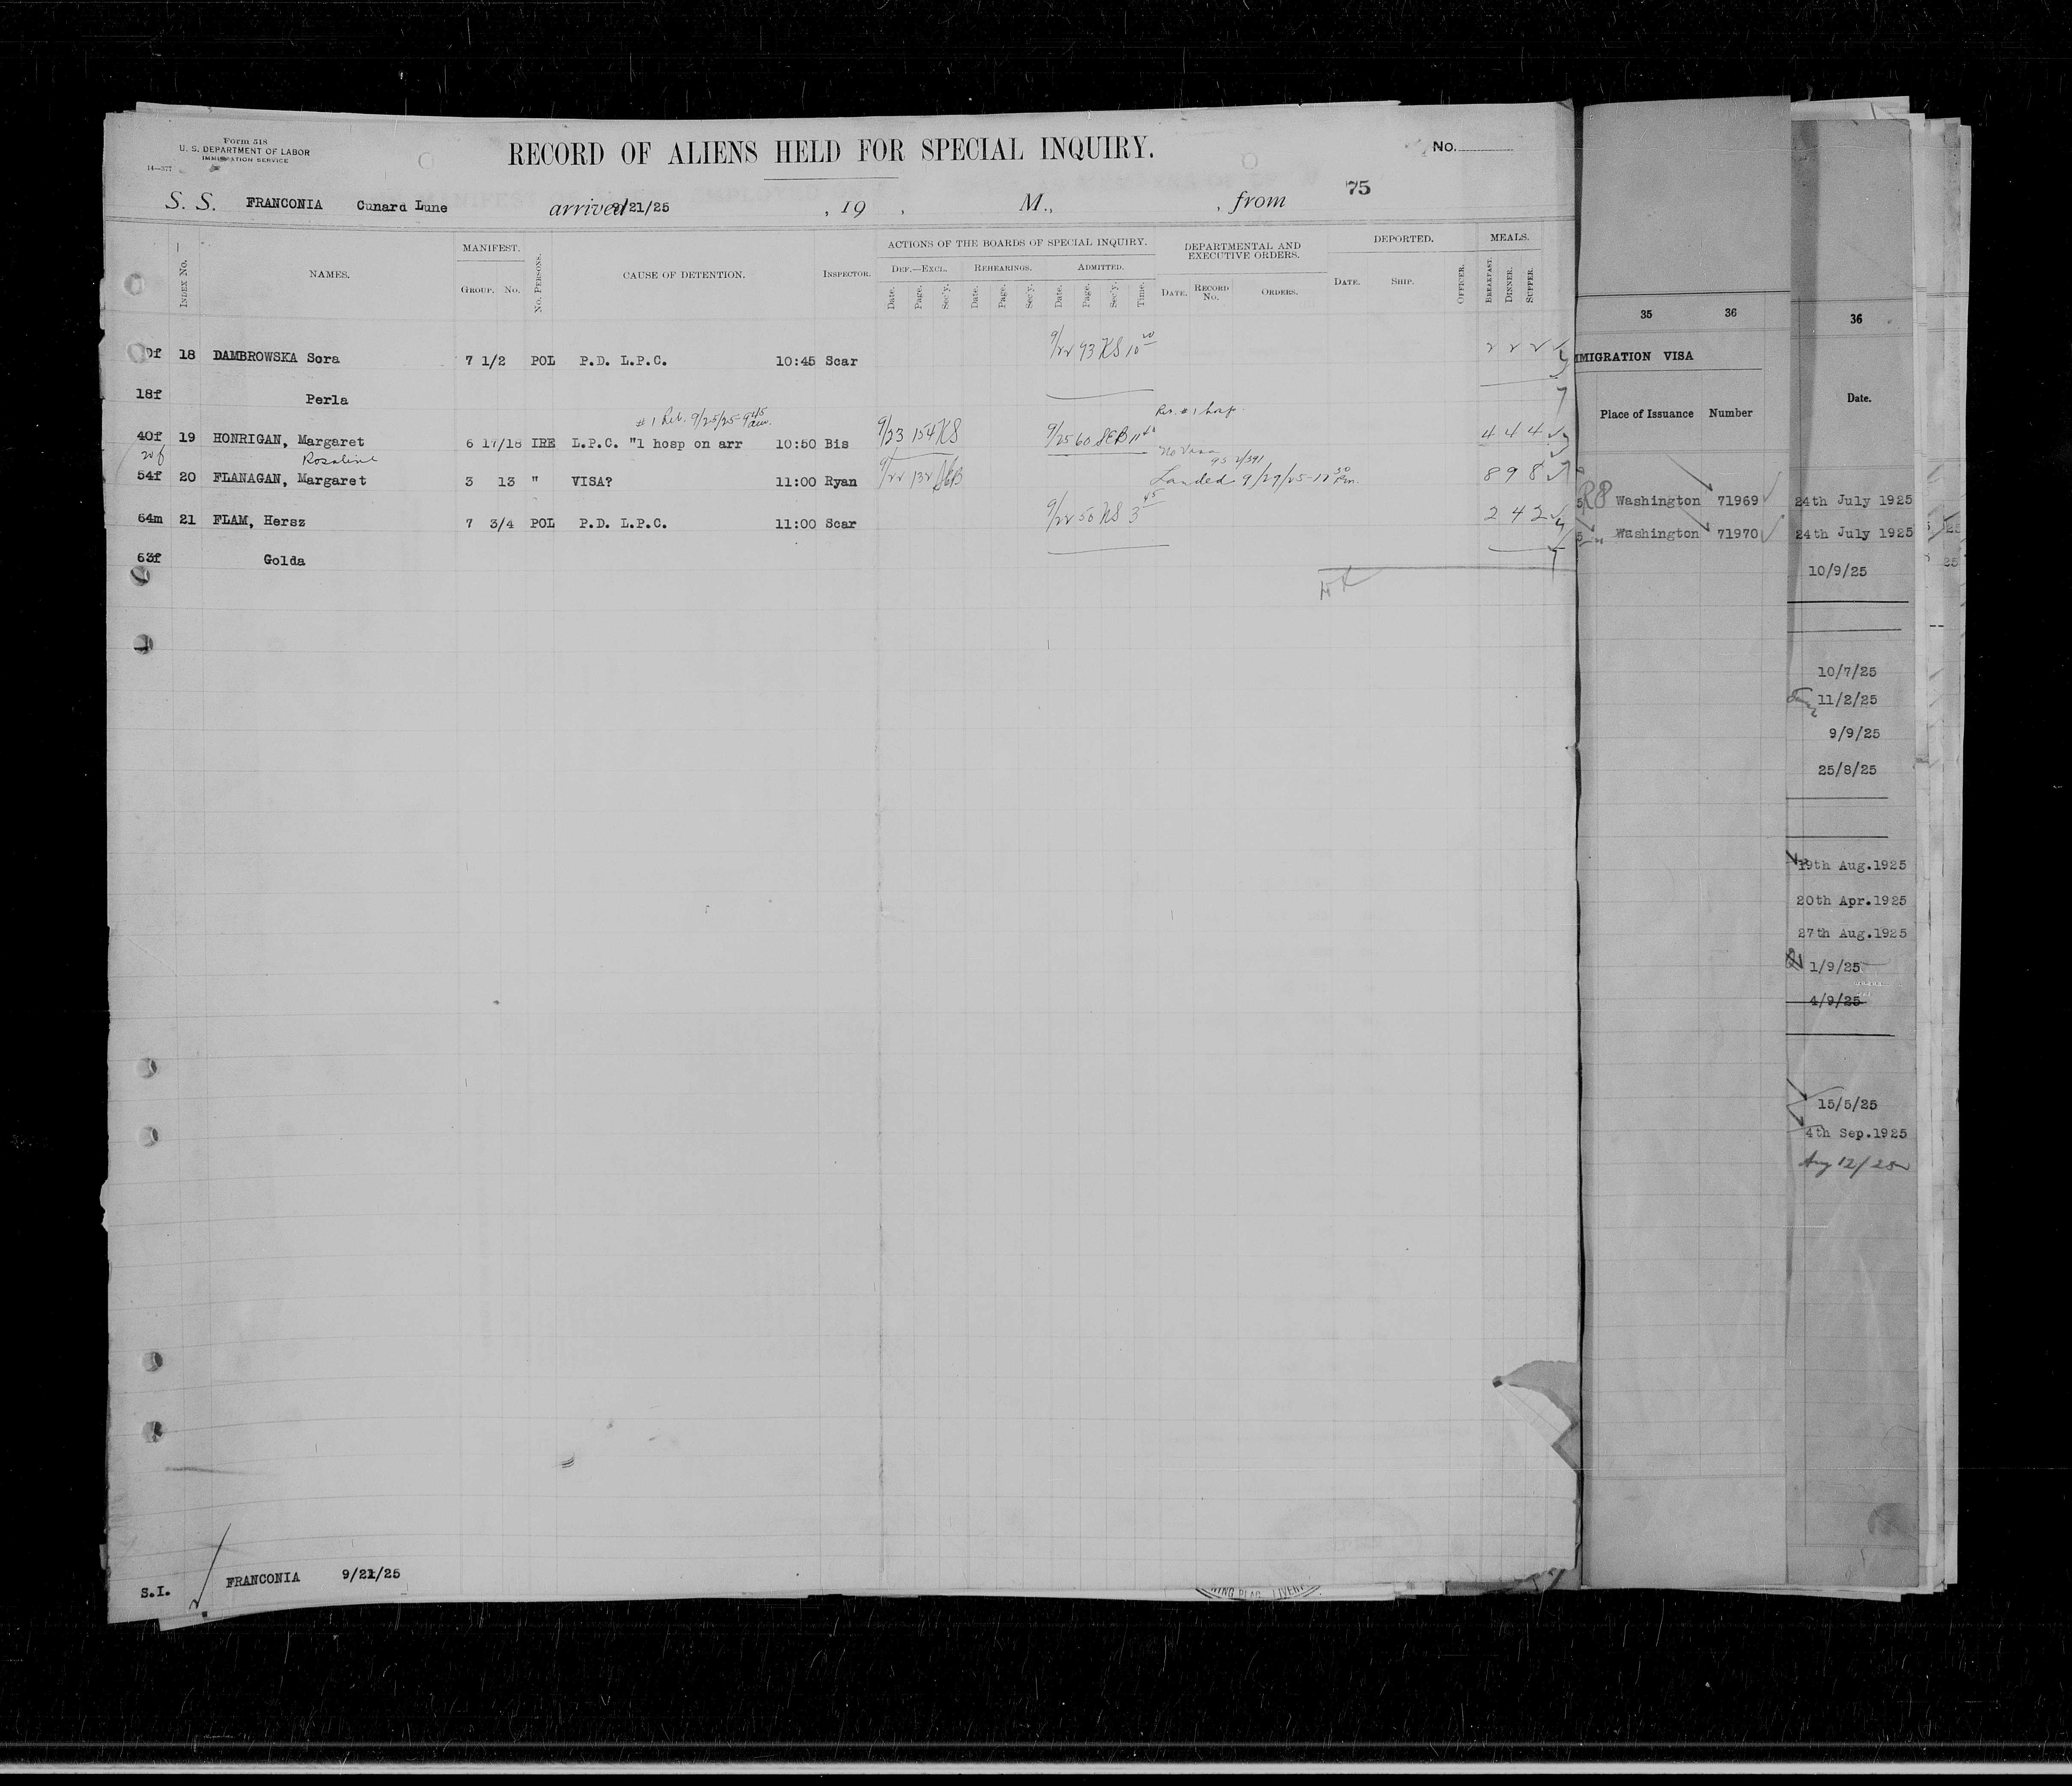 Form 518
U. S. DEPARTMENT OF LABOR
IMMIGRATION SERVICE
14—577
RECORD OF ALIENS HELD FOR SPECIAL INQUIRY.
No.
75
S. S. FRANCONIA Cunard Lune arrived 9/21/25 , 19 , M., , from
INDEX No. NAMES. MANIFEST. GROUP. No. No. PERSONS. CAUSE OF DETENTION. INSPECTOR. ACTIONS OF THE BOARDS OF SPECIAL INQUIRY. DEPARTMENTAL AND EXECUTIVE ORDERS. DEPORTED. MEALS.
DEF.—EXCL. REHEARINGS. ADMITTED.
Date. Page. Sec'y. Date. Page. Sec'y. Date. Page. Sec'y. Time. DATE. RECORD No. ORDERS. DATE. SHIP. OFFICER. BREAKFAST. DINNER. SUPPER.
18 DAMBROWSKA Sora 7 1/2 POL P.D. L.P.C. 10:45 Scar 9/22 93 KS 10 2 2 2
18f Perla
# 1 Reb. 9/25/25-9 45 am.
40f 19 HONRIGAN, Margaret 6 17/18 IRE L.P.C. "1 hosp on arr 10:50 Bis 9/23 154 KS 9/25 60 SEB 11 4 4 4
20f Rosaline No Visa
54f 20 FLANAGAN, Margaret 3 13 " VISA? 11:00 Ryan 9/22 132 Landed 9/29/25-12 30 Pm. 8 9 8
64m 21 FLAM, Hersz 7 3/4 POL P.D. L.P.C. 11:00 Scar 9/22 50 KS 3 45 2 4 2
63f Golda
S.I. FRANCONIA 9/21/25
35 36
MMIGRATION VISA
Place of Issuance Number
Washington 71969
Washington 71970
36
Date.
24th July 1925
24th July 1925
10/9/25
10/7/25
11/2/25
9/9/25
25/8/25
19th Aug.1925
20th Apr.1925
27th Aug.1925
1/9/25
4/9/25
15/5/25
4th Sep.1925
Aug 12/25